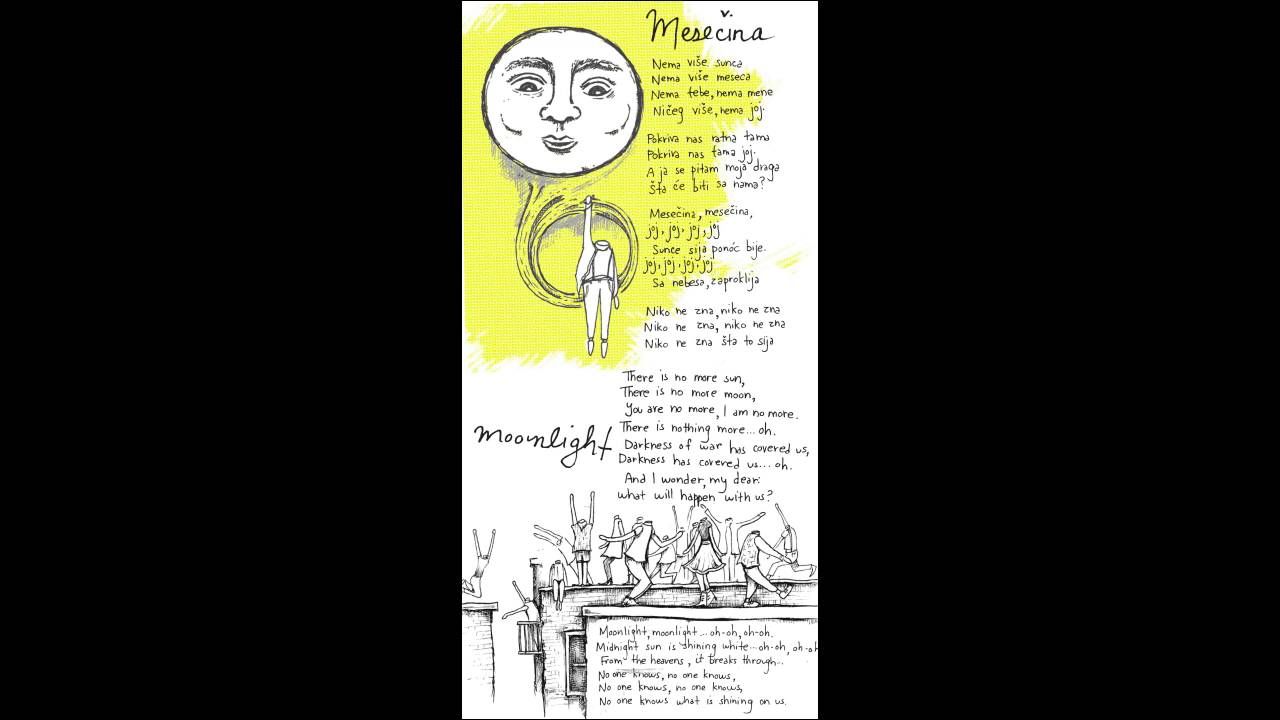 Mesečina
Nema više sunca
Nema više meseca
Nema tebe, nema mene
Ničeg više, nema joj.
Pokriva nas ratna tama
Pokriva nas tama joj.
A ja se pitam moja draga
Šta će biti sa nama?
Mesečina, mesečina,
joj, joj, joj, joj
Sunce sija ponoć bije.
joj, joj, joj, joj
Sa nebesa, zaproklija
Niko ne zna, niko ne zna
Niko ne zna, niko ne zna
Niko ne zna šta to sija
Moonlight
There is no more sun,
There is no more moon,
You are no more, I am no more.
There is nothing more... oh.
Darkness of war has covered us,
Darkness has covered us... oh.
And I wonder, my dear:
what will happen with us?
Moonlight, moonlight... oh-oh, oh-oh.
Midnight sun is shining white... oh-oh, oh-oh
From the heavens, it breaks through...
No one knows, no one knows,
No one knows, no one knows,
No one knows what is shining on us.